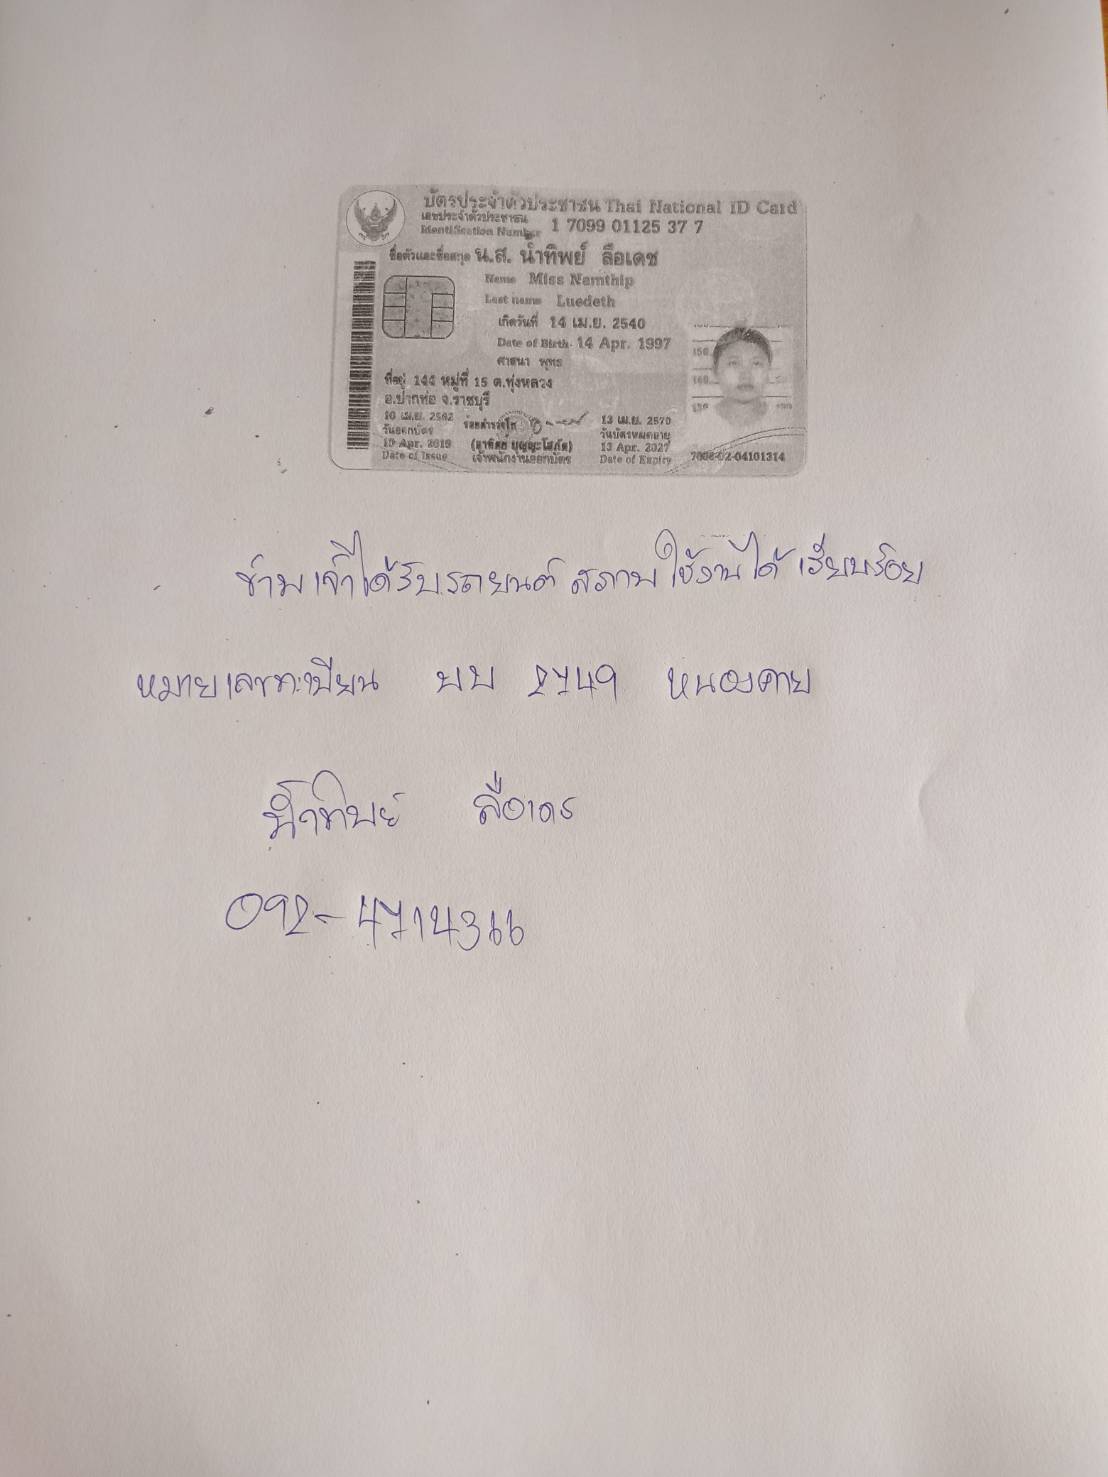 บัตรประจำตัวประชาชน Thai National ID Card
เลขประจำตัวประชาชน
Identification Number 1 7099 01125 37 7
ชื่อตัวและชื่อสกุล น.ส. น้ำทิพย์ ลือเดช
Name Miss Namthip
Last name Luedeth
เกิดวันที่ 14 เม.ย. 2540
Date of Birth 14 Apr. 1997
ศาสนา พุทธ
ที่อยู่ 144 หมู่ที่ 15 ต.ทุ่งหลวง
อ.ปากท่อ จ.ราชบุรี
10 เม.ย. 2562
วันออกบัตร
10 Apr. 2019
Date of Issue
ร้อยตำรวจโท
(อาทิตย์ บุญญะโสภัต)
เจ้าพนักงานออกบัตร
13 เม.ย. 2570
วันบัตรหมดอายุ
13 Apr. 2027
Date of Expiry
150
160
150
7008-02-04101314
ข้าพเจ้าได้รับรถยนต์ สภาพใช้งานได้ เรียบร้อย
หมายเลขทะเบียน บบ 2749 หนองคาย
น้ำทิพย์ ลือเดช
092-4714366